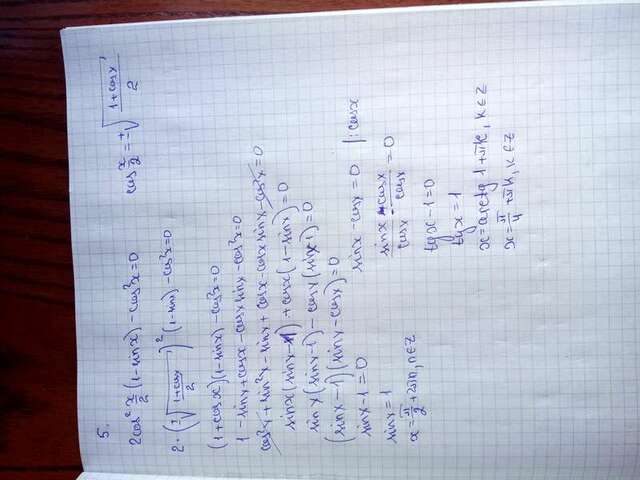 5.
2cos² x/2 (1-sinx) - cos²x = 0
cos x/2 = ± √((1+cosx)/2)
2·(±√((1+cosx)/2))² (1-sinx) - cos²x = 0
(1+cosx)(1-sinx) - cos²x = 0
1 - sinx + cosx - cosx sinx - cos²x = 0
cos²x + sin²x - sinx + cosx - cosx sinx - cos²x = 0
sinx(sinx-1) + cosx(1-sinx) = 0
sinx(sinx-1) - cosx(sinx-1) = 0
(sinx-1)(sinx-cosx) = 0
sinx-1=0
sinx = 1
x = π/2 + 2πn, n∈Z
sinx-cosx = 0 |:cosx
sinx/cosx - cosx/cosx = 0
tgx-1=0
tgx = 1
x = arctg 1 + πk, k∈Z
x = π/4 + πk, k∈Z